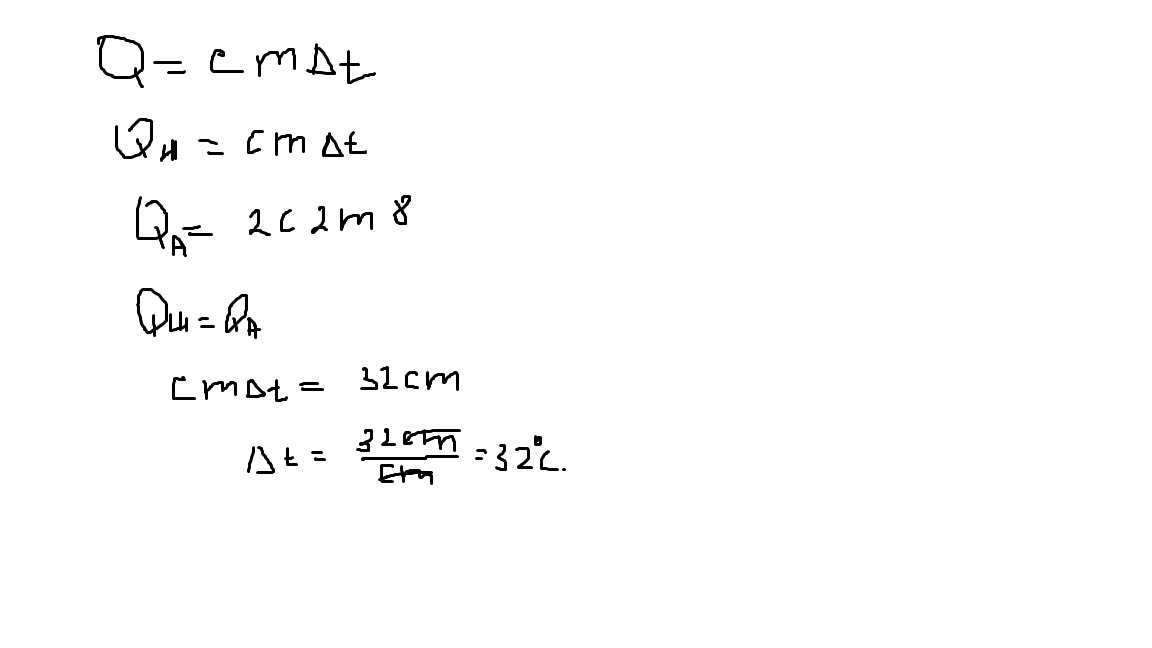 Q = cm Δt
Qн = cm Δt
QА = 2c 2m 8
Qш = QА
cm Δt = 32cm
Δt = 32cm/cm = 32°C.